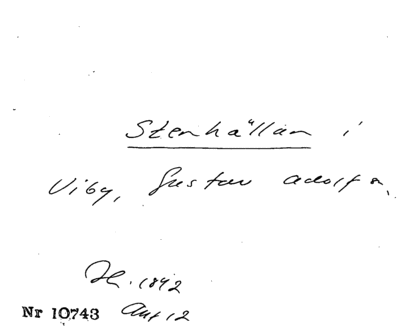 Stenhällan i
Viby, Gustav Adolf s.
H. 1892
Nr 10743 Ant 12